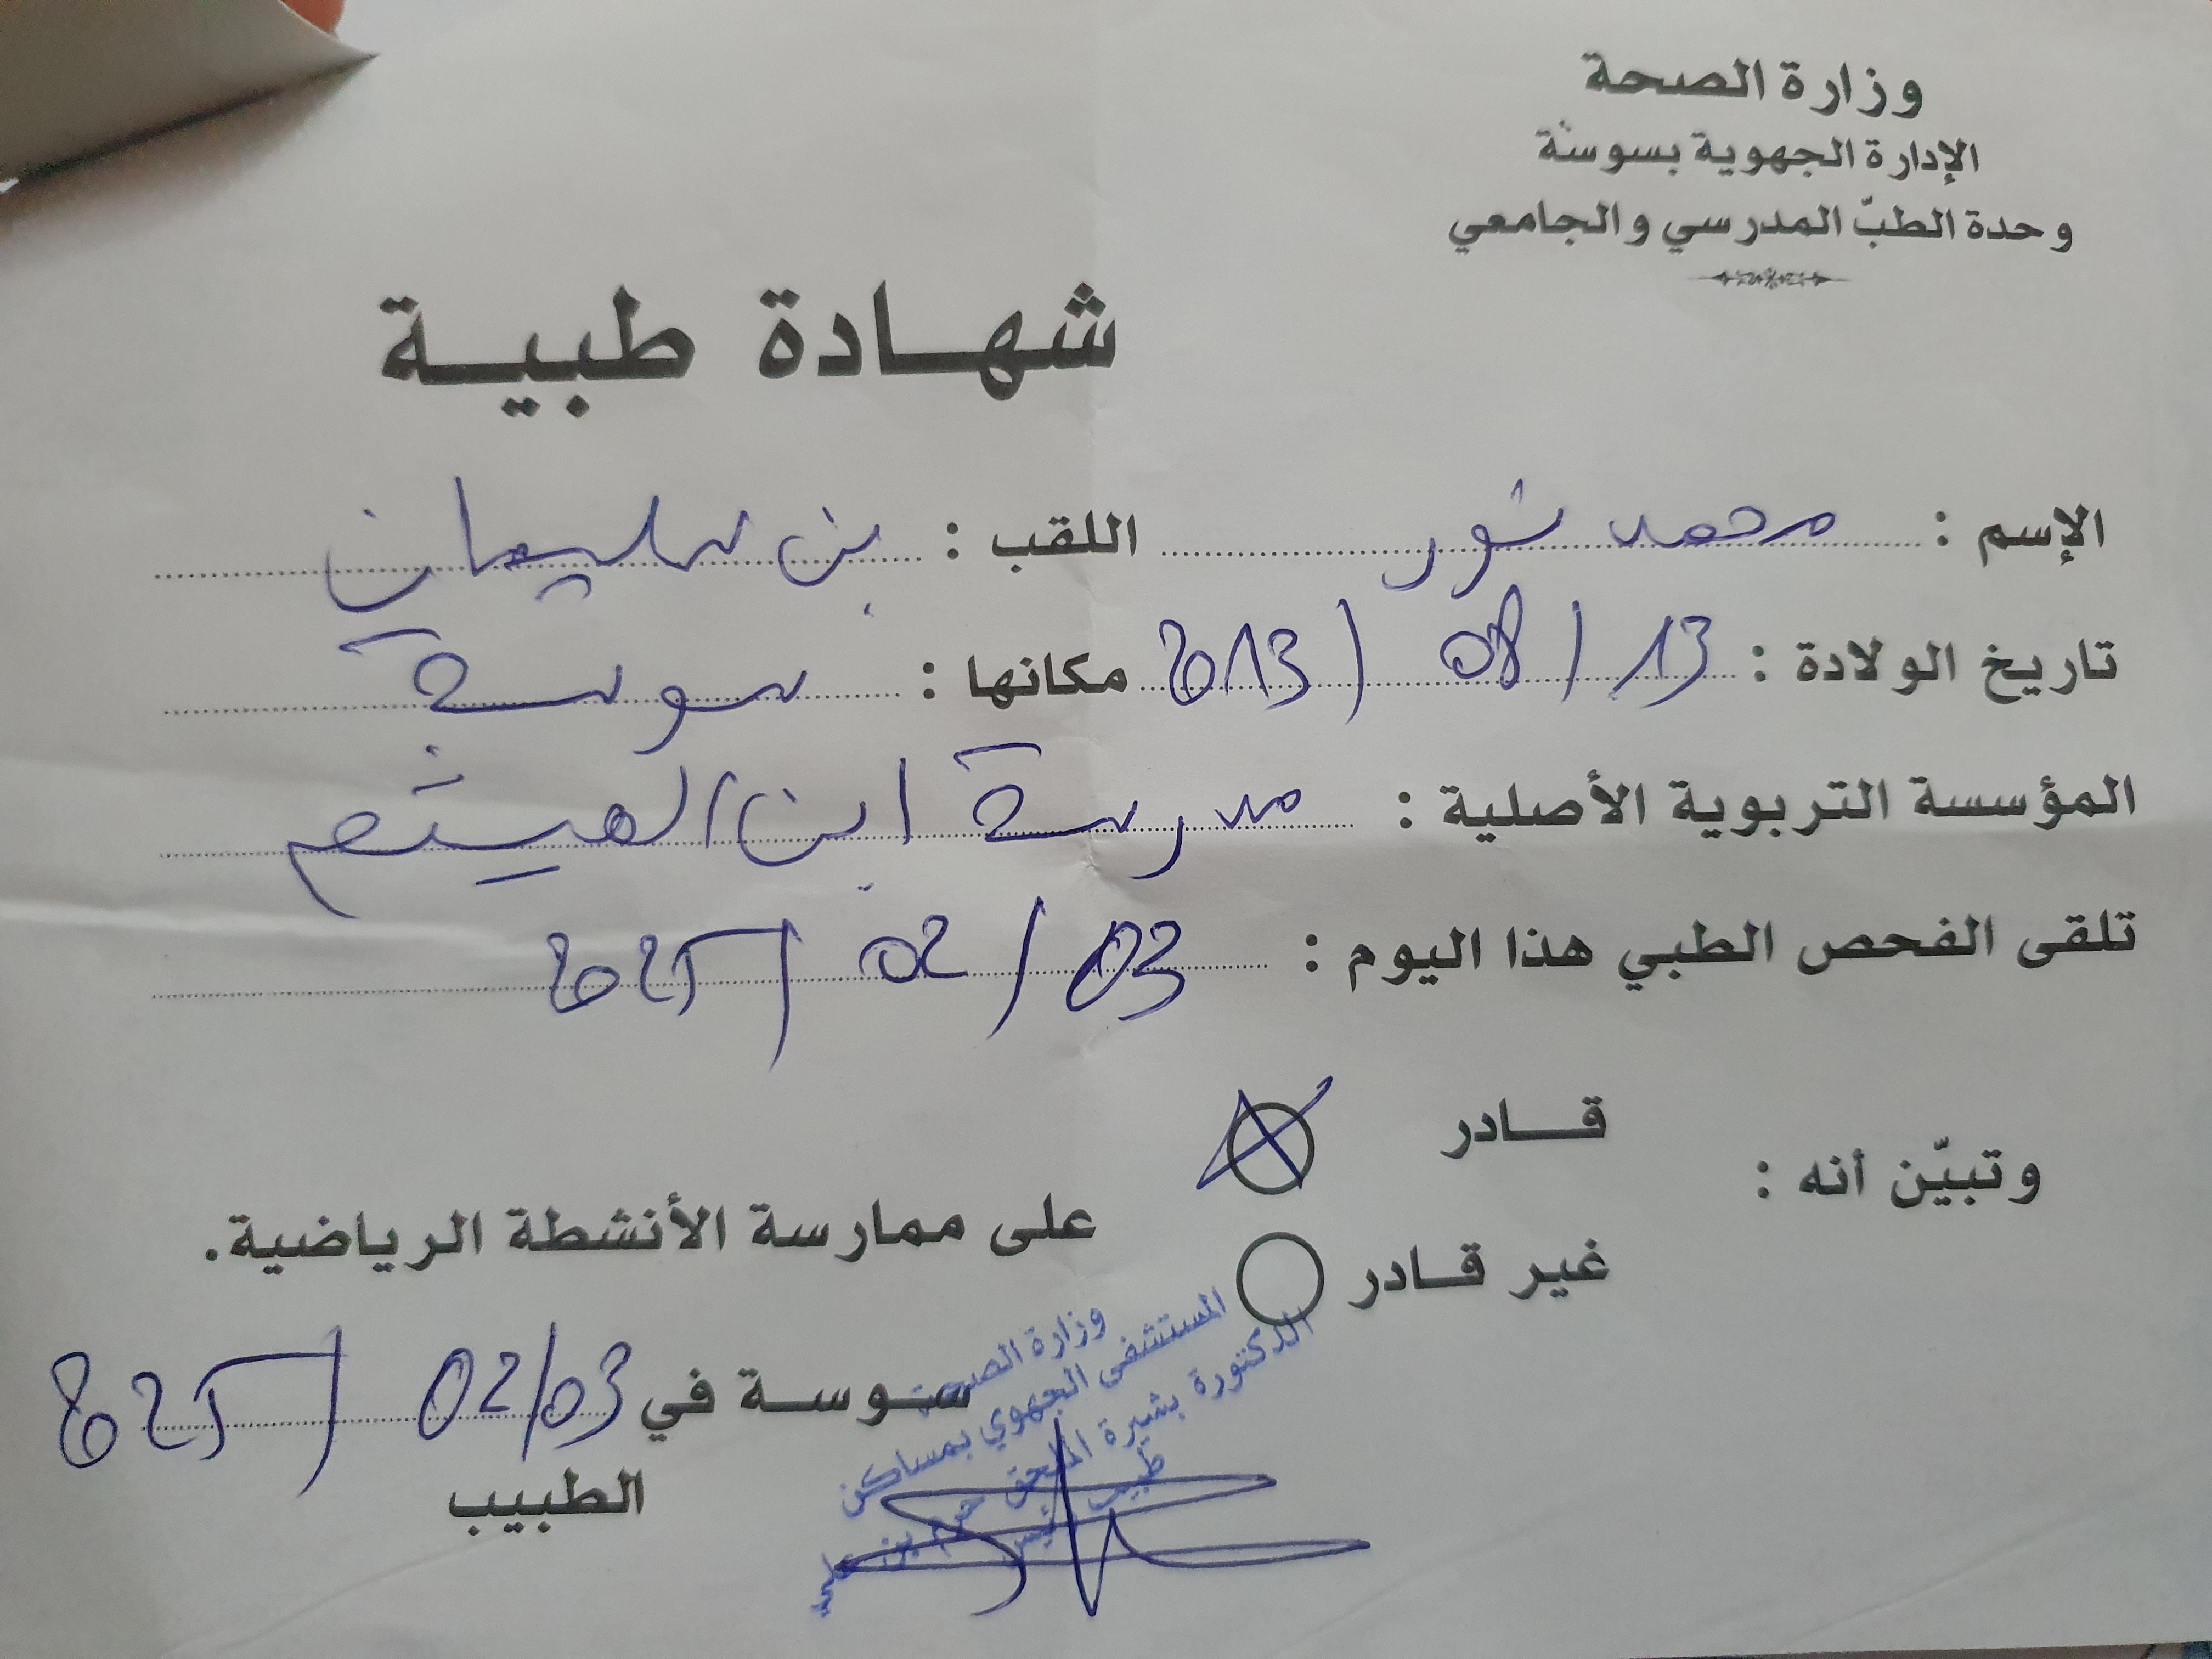 وزارة الصحة
الإدارة الجهوية بسوسة
وحدة الطبّ المدرسي والجامعي
شهادة طبية
الإسم : محمد نور اللقب : بن سليمان
تاريخ الولادة : 13 / 08 / 2013 مكانها : سوسة
المؤسسة التربوية الأصلية : مدرسة ابن الهيثم
تلقى الفحص الطبي هذا اليوم : 03 / 02 / 2025
وتبيّن أنه :
قادر
غير قادر
على ممارسة الأنشطة الرياضية.
سوسة في 02/03 / 2025
الطبيب
وزارة الصحة
المستشفى الجهوي بمساكن
الدكتورة بشيرة حرم بن علي
طبيب رئيس